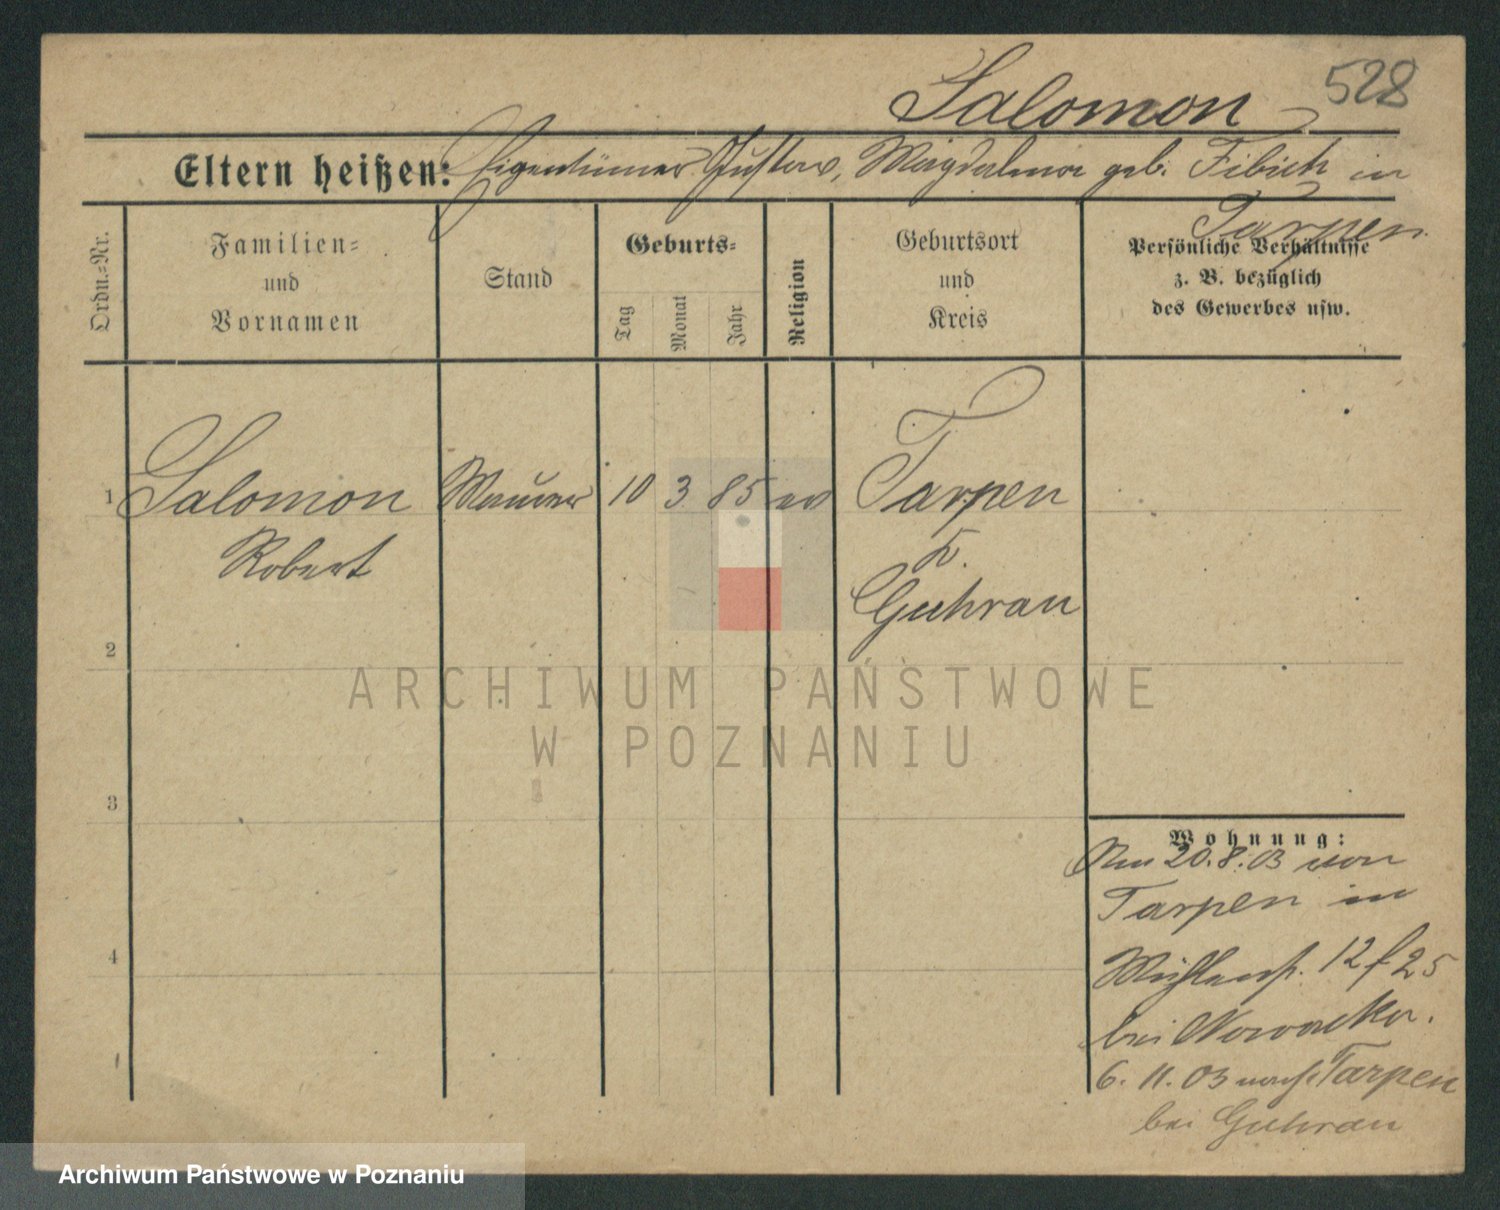 528
Salomon
Eltern heißen: Eigentümer Gustav, Magdalena geb. Fibich in
Tarpen
Ordn.-Nr.
Familien-
und
Vornamen
Stand
Geburts-
Tag
Monat
Jahr
Religion
Geburtsort
und
Kreis
Persönliche Verhältnisse
z. B. bezüglich
des Gewerbes usw.
1 Salomon Maurer 10 3 85 ev Tarpen
Robert K.
Guhrau
2
ARCHIWUM PAŃSTWOWE
W POZNANIU
3
Wohnung:
Am 20.8.03 von
Tarpen in
4
Mühlenst. 12 f 25
bei
6. 11. 03 nach Tarpen
bei Guhrau
Archiwum Państwowe w Poznaniu